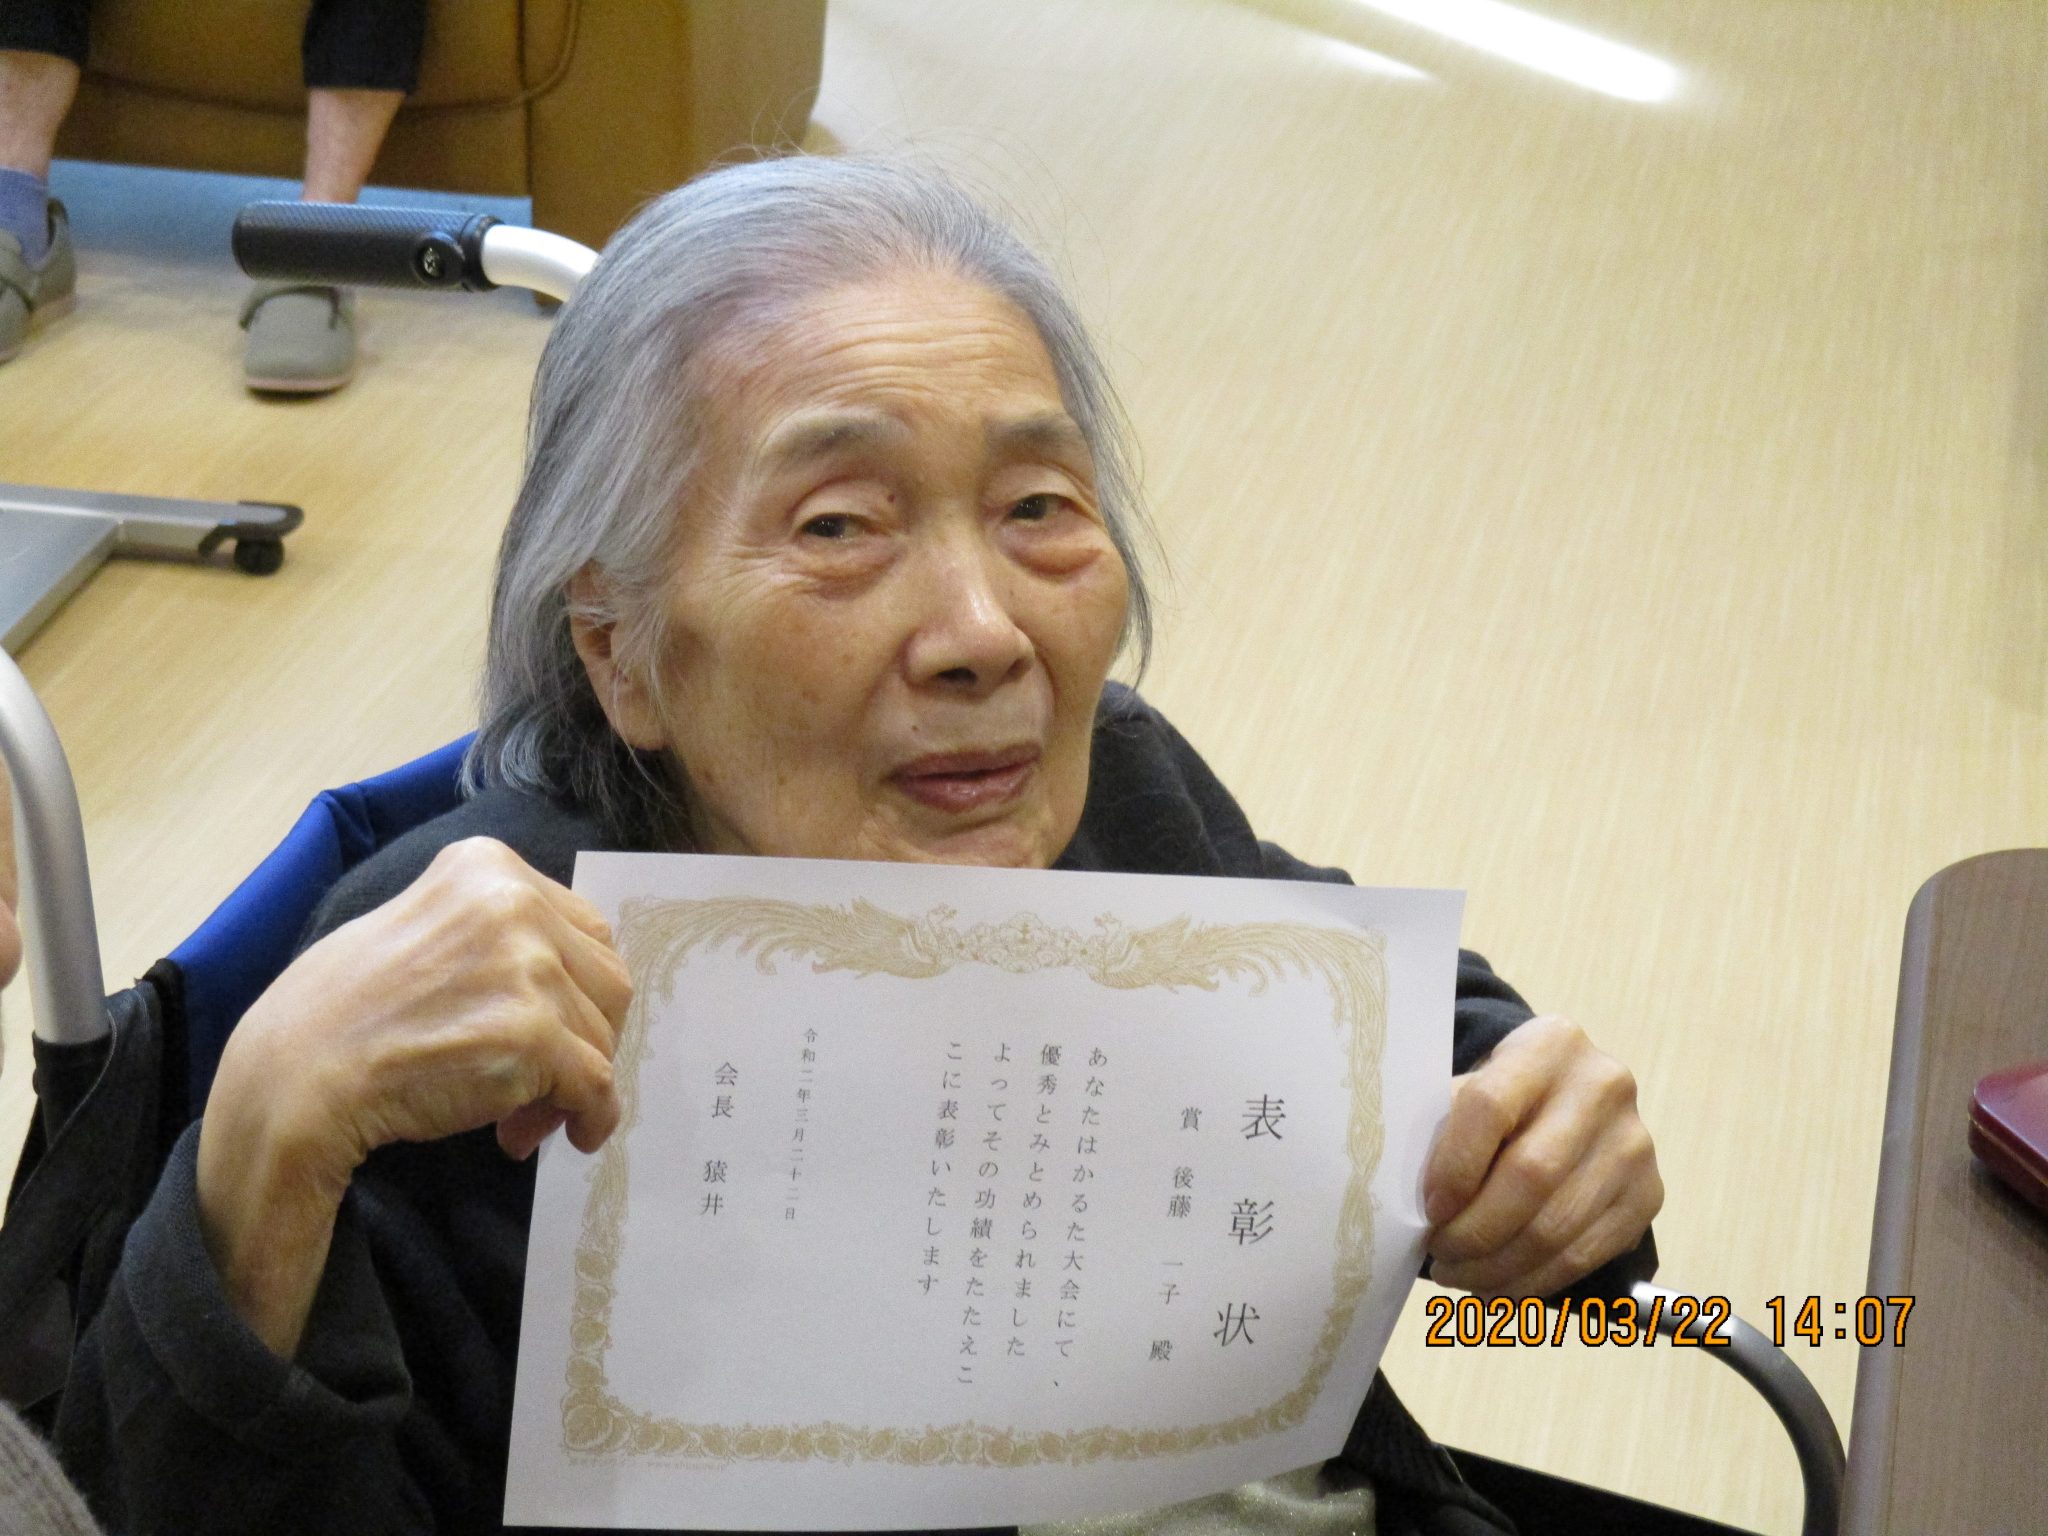 表彰状
賞 後藤 一子 殿
あなたはかるた大会にて、
優秀とみとめられました
よってその功績をたたえこ
こに表彰いたします
令和二年三月二十二日
会長 猿井
2020/03/22 14:07